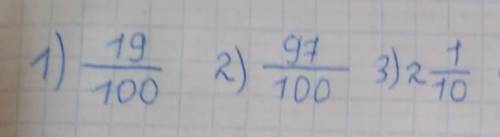 1) 19/100 2) 97/100 3) 2 1/10